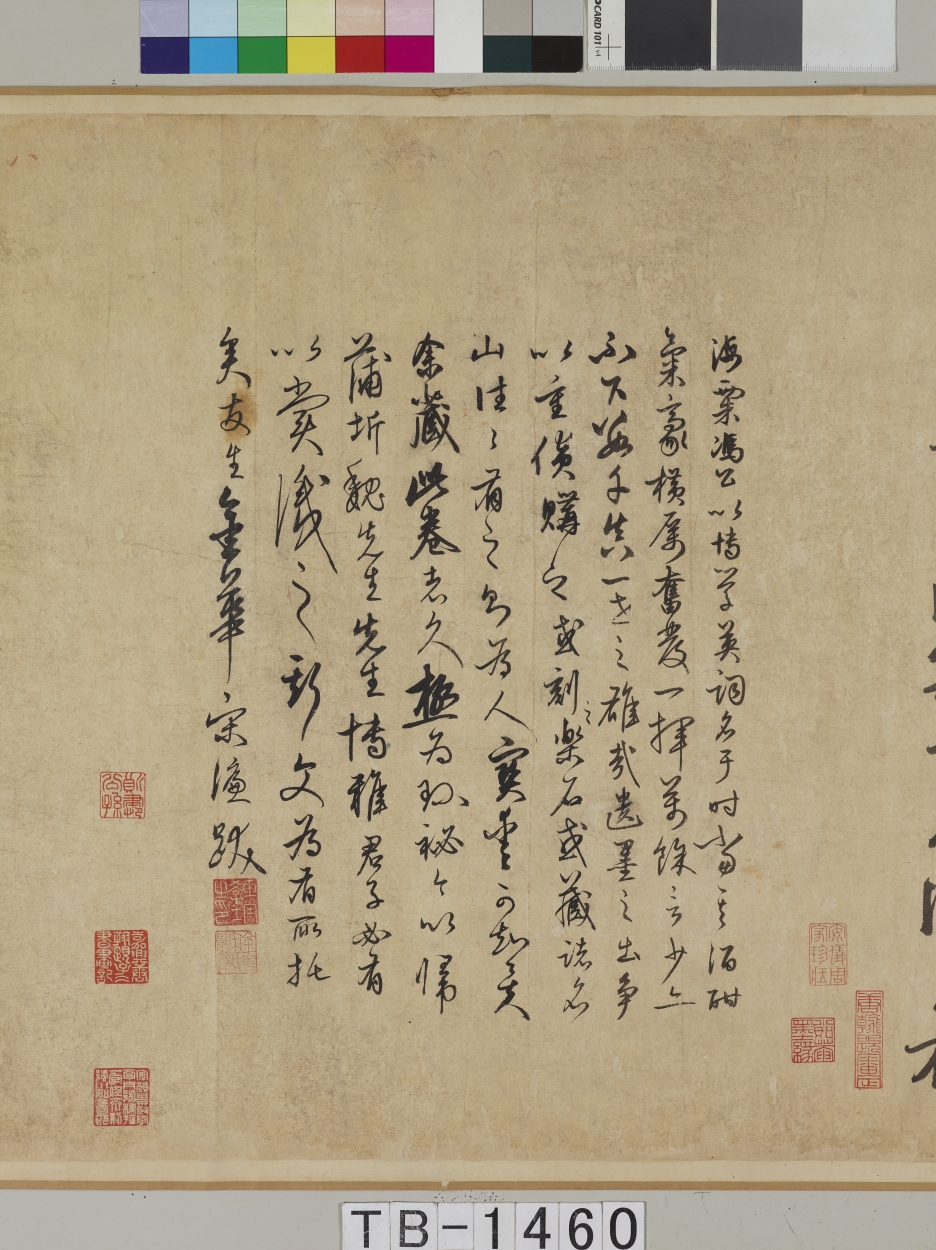 海粟馮公以博学英詞名于时當其酒酣
氣豪横厲奮發一揮萬餘言少亦
不下數千真一世之雄哉遺墨之出争
以重價購之或刻之樂石或藏諸名
山往々有之則為人寶愛可知矣
余藏此卷者久極為珍祕今以帰
蒲圻魏先生先生博雅君子必有
以賞識之斯文為有所托
矣友生金華宋濂跋
TB-1460